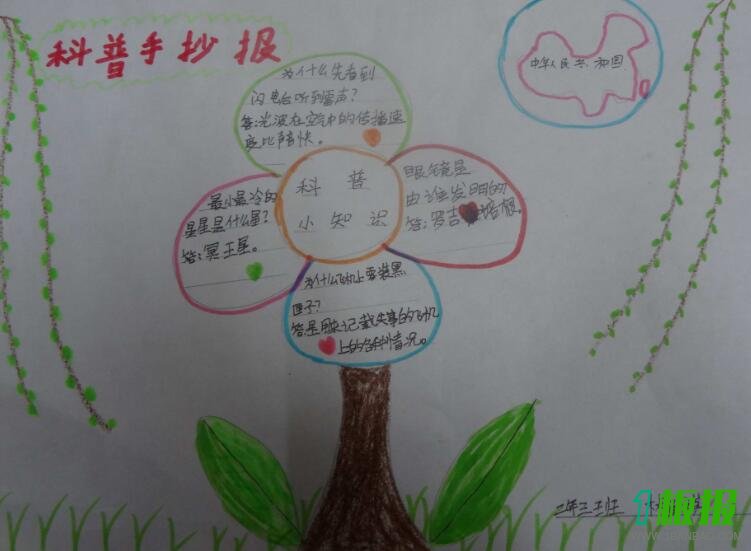 科普手抄报
中华人民共和国
为什么先看到
闪电后听到雷声？
答：光波在空气中的传播速
度比声音快。
科普
小知识
眼镜是
由谁发明的
答：罗吉
最小最冷的
星星是什么星？
答：冥王星。
为什么飞机上要装黑
匣子？
答：是用来记载失事的飞机
上的各种情况。
二年三班
1板报
WWW.1BANBAO.COM